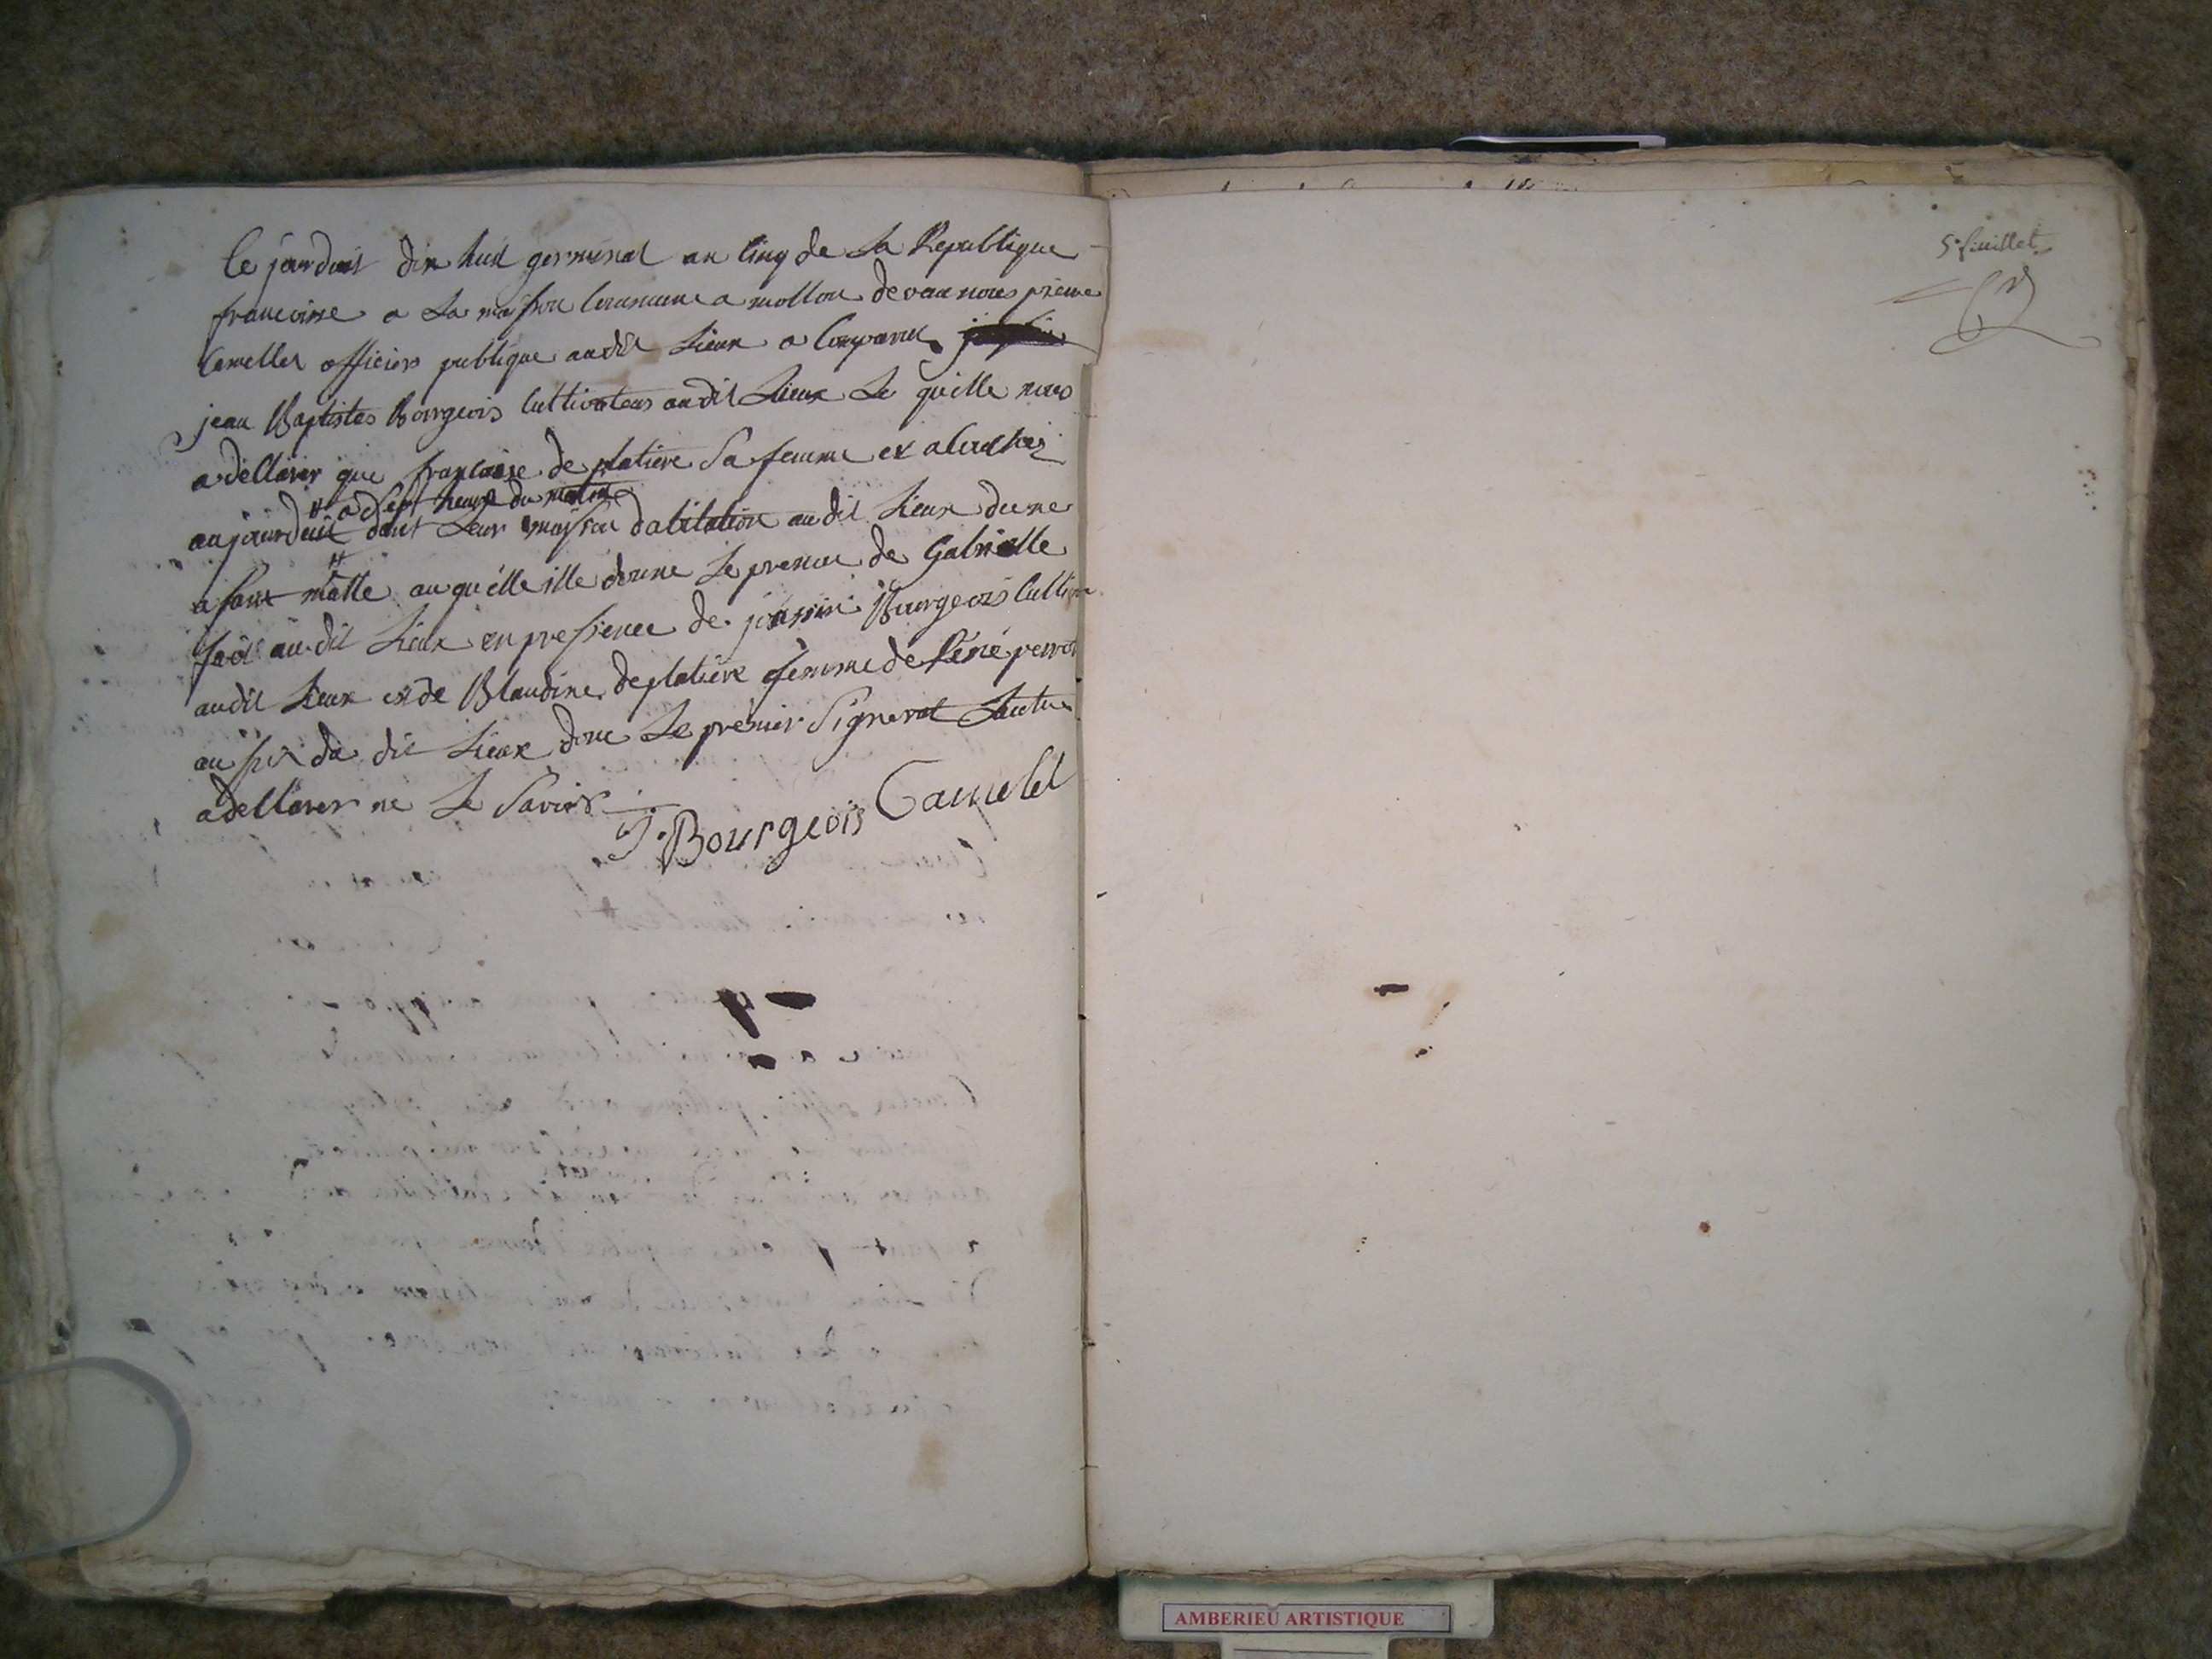 Ce jourduit dix huit germinal an cinq de La Republique
francoise a La maison Commune a mollon devan nous pierre
Camellet officiers publique audit Lieux a Comparut
jean Baptistes Bourgeois Cultivateur audit Lieux Le quelle nous
a dellarer que francoise de platiere Sa femme et acluchez
a Sept heure du matin
aujourduit dant Leur maison dabitation audit Lieux dune
afant malle au quelle ille donne Le prenon de Gabrielle
fait audit Lieux en presience de joassin Bourgeois Cultiv
audit Lieux et de Blaudine deplatiere femme de Réné perrot
aussi du dit Lieux donc Le prémier Signerat Lautre
a dellarer ne Le Savoir
J. Bourgeois Camelet
5e feuillet
AMBERIEU ARTISTIQUE